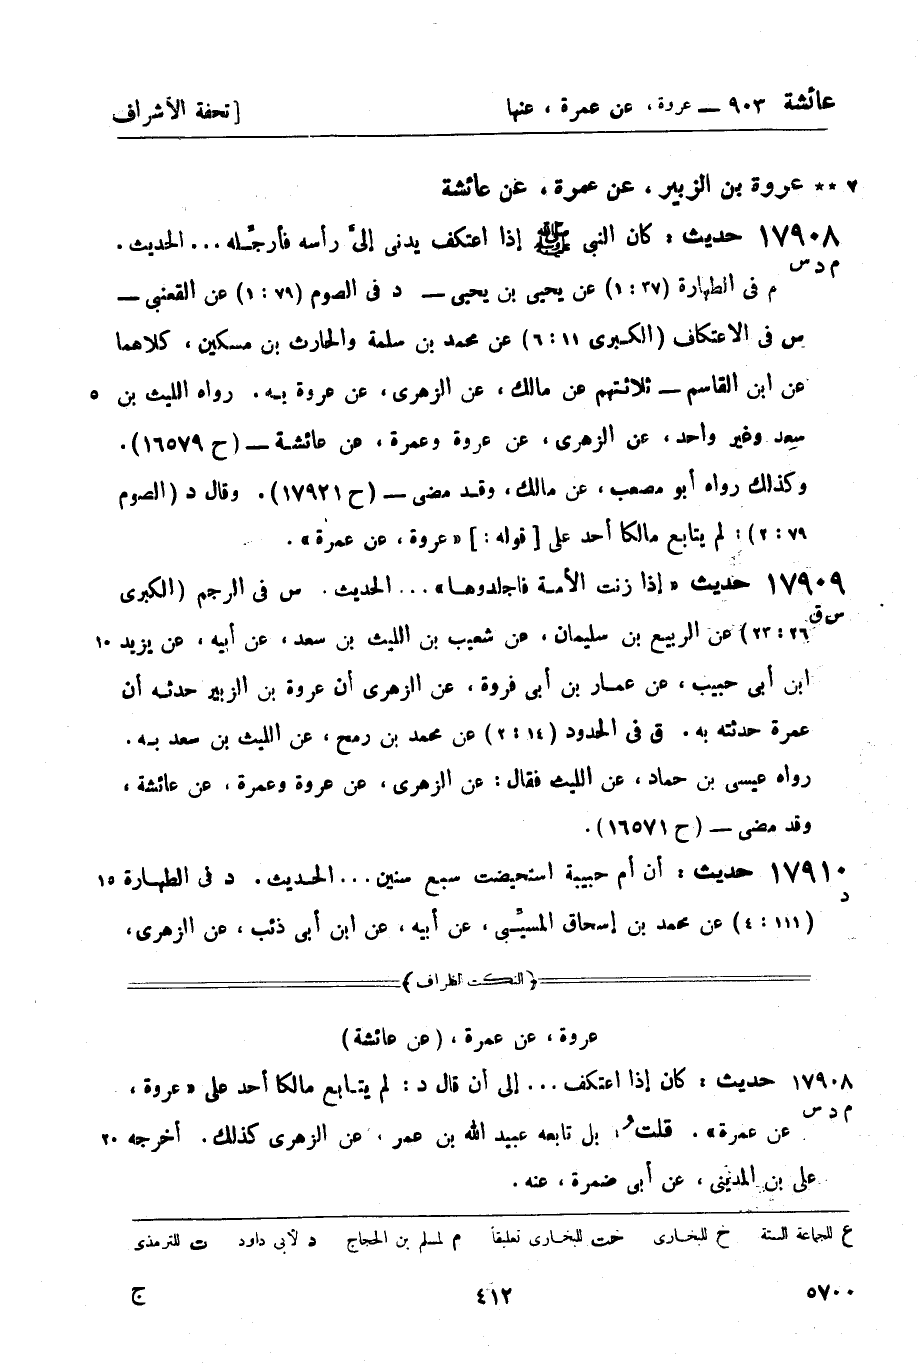 عائشة ٩٠٣ — عروة، عن عمرة، عنها [تحفة الأشراف
٧ ** عروة بن الزبير، عن عمرة، عن عائشة
١٧٩٠٨ حديث: كان النبي ﷺ إذا اعتكف يدنى إلىَّ رأسه فأرجّله... الحديث.
م د س
م فى الطهارة (٣٧ : ١) عن يحيى بن يحيى — د فى الصوم (٧٩ : ١) عن القعنبى —
س فى الاعتكاف (الكبرى ١١ : ٦) عن محمد بن سلمة والحارث بن مسكين، كلاهما
عن ابن القاسم — ثلاثتهم عن مالك، عن الزهرى، عن عروة بـه. رواه الليث بن ٥
سعد وغير واحد، عن الزهرى، عن عروة وعمرة، عن عائشة — (ح ١٦٥٧٩).
وكذلك رواه أبو مصعب، عن مالك، وقد مضى — (ح ١٧٩٢١). وقال د (الصوم
٧٩ : ٢): لم يتابع مالكا أحد على [قوله:] «عروة، عن عمرة».
١٧٩٠٩ حديث «إذا زنت الأمة فاجلدوها»... الحديث. س فى الرجم (الكبرى
س ق
٢٦ : ٢٣) عن الربيع بن سليمان، عن شعيب بن الليث بن سعد، عن أبيه، عن يزيد ١٠
ابن أبى حبيب، عن عمار بن أبى فروة، عن الزهرى أن عروة بن الزبير حدثه أن
عمرة حدثته به. ق فى الحدود (١٤ : ٢) عن محمد بن رمح، عن الليث بن سعد به.
رواه عيسى بن حماد، عن الليث فقال: عن الزهرى، عن عروة وعمرة، عن عائشة،
وقد مضى — (ح ١٦٥٧١).
١٧٩١٠ حديث: أن أم حبيبة استحيضت سبع سنين... الحديث. د فى الطهارة ١٥
د
(١١١ : ٤) عن محمد بن إسحاق المسيّبى، عن أبيه، عن ابن أبى ذئب، عن الزهرى،
﴿النكت الظراف﴾
عروة، عن عمرة، (عن عائشة)
١٧٩٠٨ حديث: كان إذا اعتكف... إلى أن قال د: لم يتابع مالكا أحد على «عروة،
م د س
عن عمرة». قلت: بل تابعه عبيد الله بن عمر، عن الزهرى كذلك. أخرجه ٢٠
على بن المدينى، عن أبى ضمرة، عنه.
ع للجماعة الستة خ للبخارى خت للبخارى تعليقاً م لمسلم بن الحجاج د لأبى داود ت للترمذى
٥٧٠٠ ٤١٢ ج